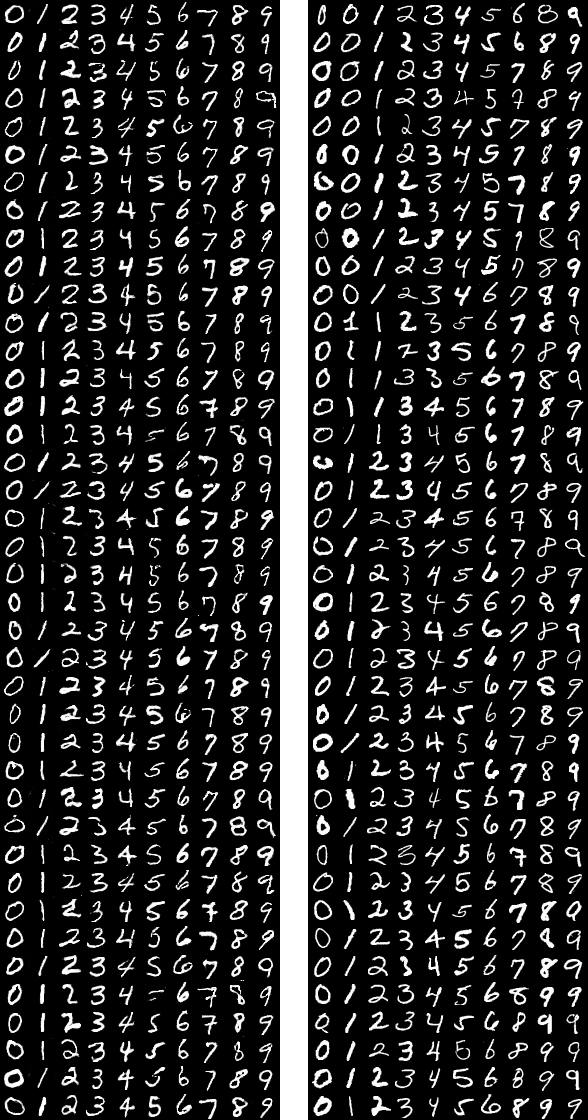 0 1 2 3 4 5 6 7 8 9
0 1 2 3 4 5 6 7 8 9
0 1 2 3 4 5 6 7 8 9
0 1 2 3 4 5 6 7 8 9
0 1 2 3 4 5 6 7 8 9
0 1 2 3 4 5 6 7 8 9
0 1 2 3 4 5 6 7 8 9
0 1 2 3 4 5 6 7 8 9
0 1 2 3 4 5 6 7 8 9
0 1 2 3 4 5 6 7 8 9
0 1 2 3 4 5 6 7 8 9
0 1 2 3 4 5 6 7 8 9
0 1 2 3 4 5 6 7 8 9
0 1 2 3 4 5 6 7 8 9
0 1 2 3 4 5 6 7 8 9
0 1 2 3 4 5 6 7 8 9
0 1 2 3 4 5 6 7 8 9
0 1 2 3 4 5 6 7 8 9
0 1 2 3 4 5 6 7 8 9
0 1 2 3 4 5 6 7 8 9
0 1 2 3 4 5 6 7 8 9
0 1 2 3 4 5 6 7 8 9
0 1 2 3 4 5 6 7 8 9
0 1 2 3 4 5 6 7 8 9
0 1 2 3 4 5 6 7 8 9
0 1 2 3 4 5 6 7 8 9
0 1 2 3 4 5 6 7 8 9
0 1 2 3 4 5 6 7 8 9
0 1 2 3 4 5 6 7 8 9
0 1 2 3 4 5 6 7 8 9
0 1 2 3 4 5 6 7 8 9
0 1 2 3 4 5 6 7 8 9
0 1 2 3 4 5 6 7 8 9
0 1 2 3 4 5 6 7 8 9
0 1 2 3 4 5 6 7 8 9
0 1 2 3 4 5 6 7 8 9
0 1 2 3 4 5 6 7 8 9
0 1 2 3 4 5 6 7 8 9
0 1 2 3 4 5 6 7 8 9
0 1 2 3 4 5 6 7 8 9
0 0 1 2 3 4 5 6 8 9
0 0 1 2 3 4 5 6 8 9
0 0 1 2 3 4 5 7 8 9
0 0 1 2 3 4 5 7 8 9
0 0 1 2 3 4 5 7 8 9
0 0 1 2 3 4 5 7 8 9
0 0 1 2 3 4 5 7 8 9
0 0 1 2 3 4 5 7 8 9
0 0 1 2 3 4 5 7 8 9
0 0 1 2 3 4 5 7 8 9
0 0 1 2 3 4 6 7 8 9
0 1 1 2 3 5 6 7 8 9
0 1 1 2 3 5 6 7 8 9
0 1 1 3 3 5 6 7 8 9
0 1 1 3 4 5 6 7 8 9
0 1 1 3 4 5 6 7 8 9
0 1 2 3 4 5 6 7 8 9
0 1 2 3 4 5 6 7 8 9
0 1 2 3 4 5 6 7 8 9
0 1 2 3 4 5 6 7 8 9
0 1 2 3 4 5 6 7 8 9
0 1 2 3 4 5 6 7 8 9
0 1 2 3 4 5 6 7 8 9
0 1 2 3 4 5 6 7 8 9
0 1 2 3 4 5 6 7 8 9
0 1 2 3 4 5 6 7 8 9
0 1 2 3 4 5 6 7 8 9
0 1 2 3 4 5 6 7 8 9
0 1 2 3 4 5 6 7 8 9
0 1 2 3 4 5 6 7 8 9
0 1 2 3 4 5 6 7 8 9
0 1 2 3 4 5 6 7 8 9
0 1 2 3 4 5 6 7 8 9
0 1 2 3 4 5 6 7 8 9
0 1 2 3 4 5 6 7 8 9
0 1 2 3 4 5 6 8 9 9
0 1 2 3 4 5 6 8 9 9
0 1 2 3 4 5 6 8 9 9
0 1 2 3 4 5 6 8 9 9
0 1 2 3 4 5 6 8 9 9